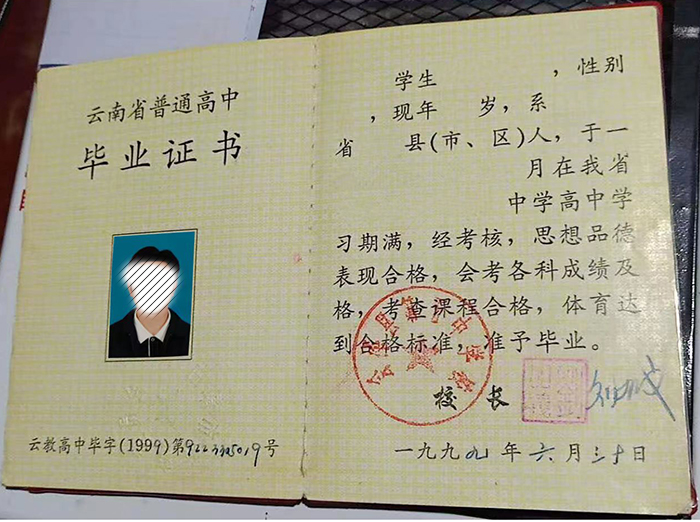 云南省普通高中
毕业证书
云教高中毕字(1999)第922335019号
学生 ，性别
，现年 岁，系
省 县(市、区)人，于一
月在我省
中学高中学
习期满，经考核，思想品德
表现合格，会考各科成绩及
格，考查课程合格，体育达
到合格标准，准予毕业。
校 长
一九九九年六月三十日